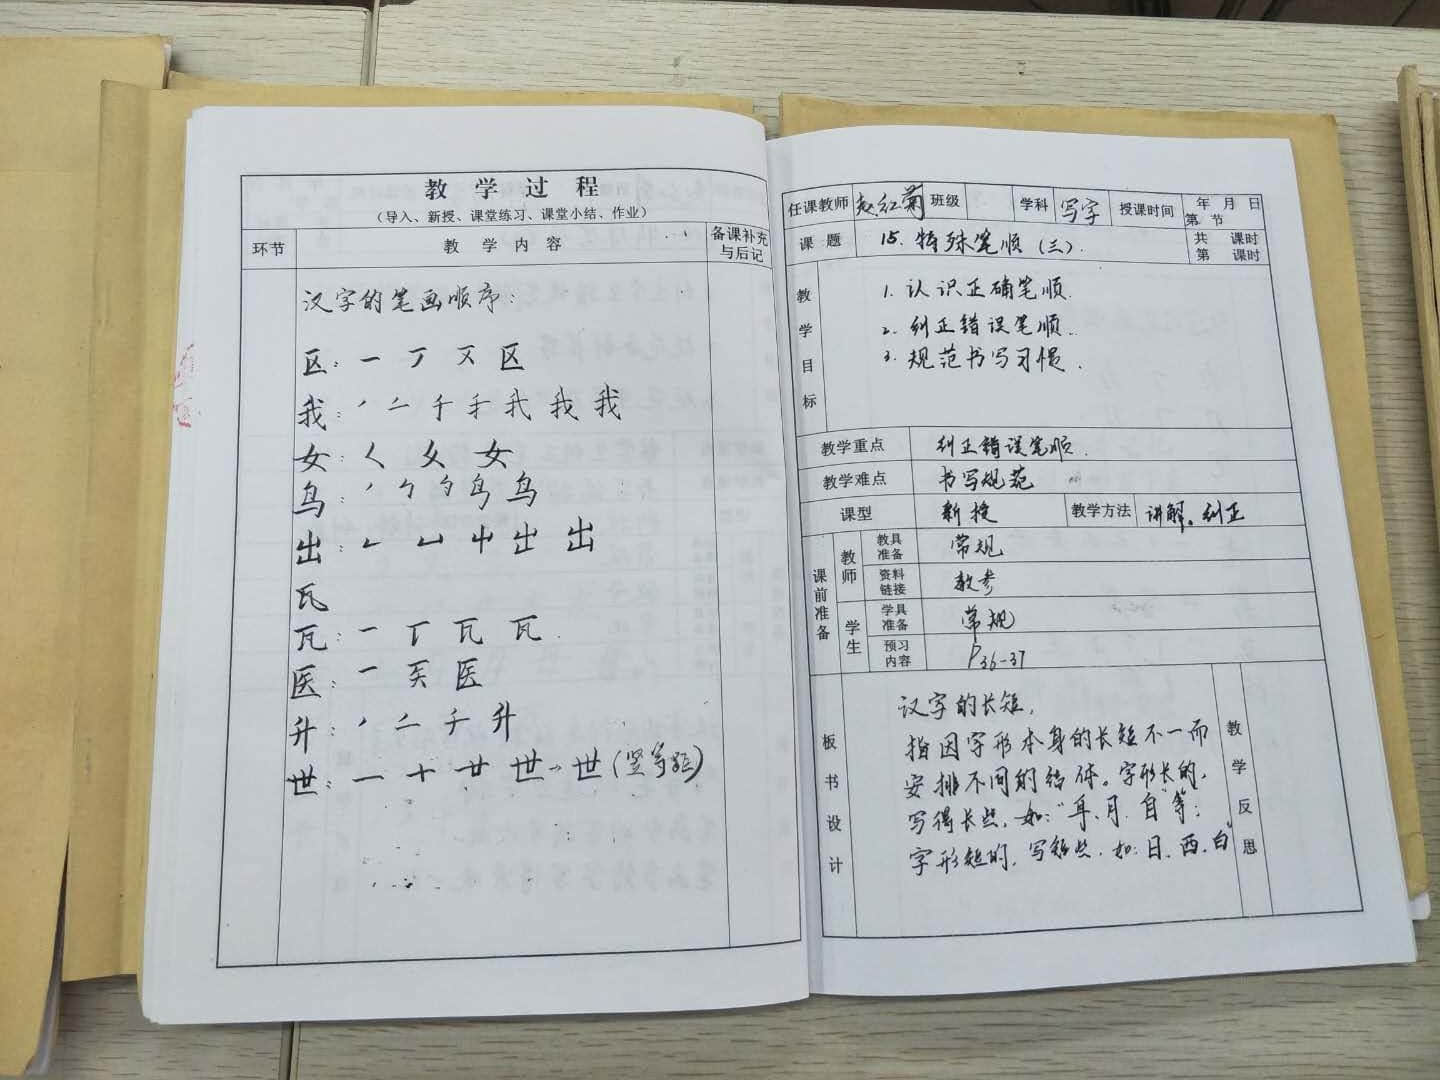 教 学 过 程
（导入、新授、课堂练习、课堂小结、作业）
环节 教 学 内 容 备课补充与后记
汉字的笔画顺序：
区：一 丆 区
我：丿 二 千 手 我 我
女：𡿨 女 女
鸟：丿 鸟 鸟
出：凵 屮 出 出
瓦
瓦：一 瓦 瓦
医：一 医
升：丿 二 千 升
世：一 十 廿 世→世（竖等距）
任课教师 赵红菊 班级 学科 写字 授课时间 年 月 日 第 节
课 题 15. 特殊笔顺（三）. 共 课时 第 课时
教学目标
1. 认识正确笔顺.
2. 纠正错误笔顺.
3. 规范书写习惯.
教学重点 纠正错误笔顺.
教学难点 书写规范
课型 新授 教学方法 讲解。纠正
课前准备
教师 教具准备 常规
资料链接 教参
学生 学具准备 常规
预习内容 P36-37
板书设计
汉字的长短,
指因字形本身的长短不一而
安排不同的结体。字形长的,
写得长些,如:“耳、月、自”等;
字形短的,写短些.如:日、西、白
教学反思